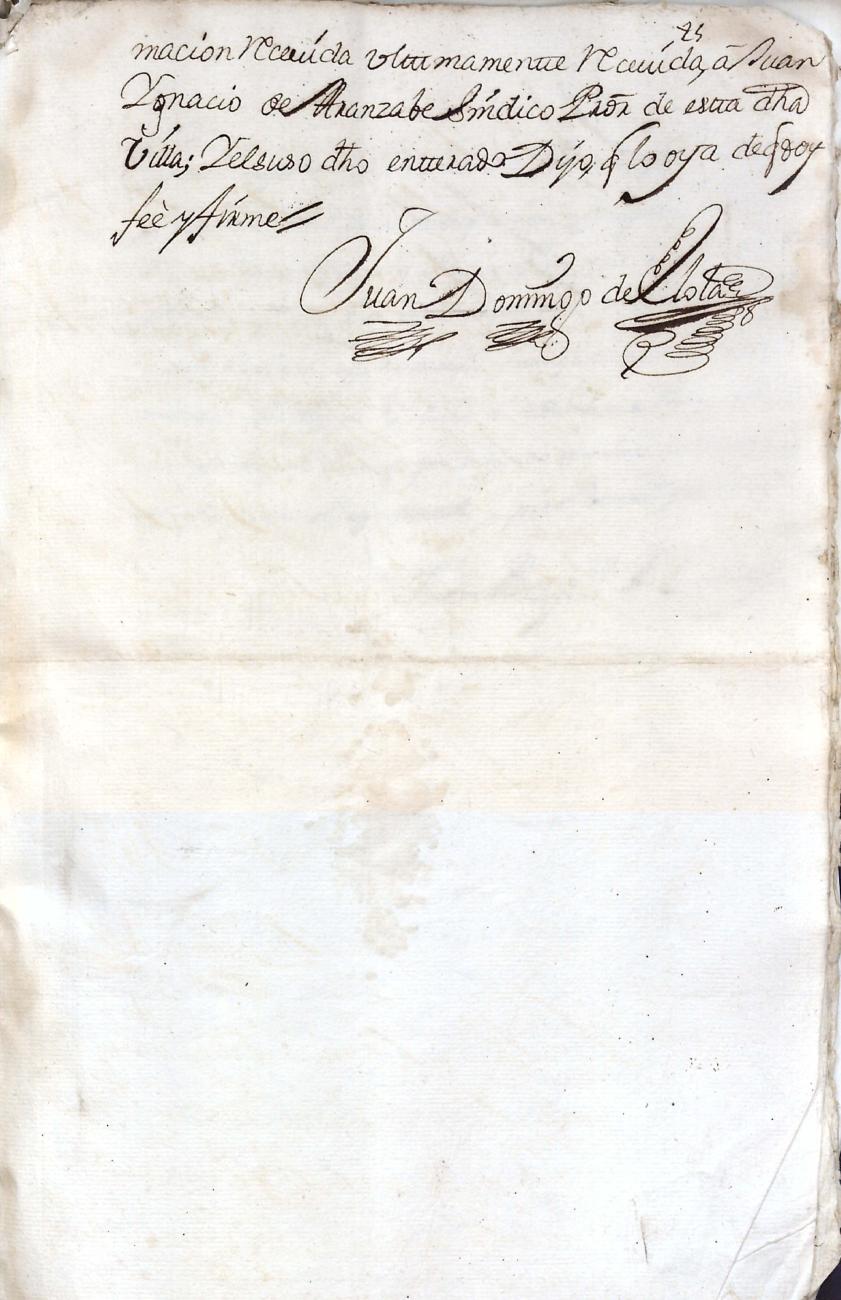 25
macion Receuida vltimamente Receuida, â Juan
Ygnacio de Aranzabe Sindico Pror de esta dha
Villa; Yelsuso dho enterado Dijo, q lo oya deq doy
feè y firme
Juan Domingo de